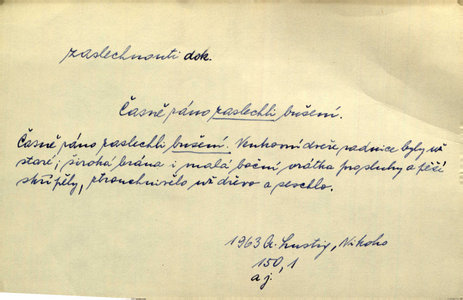 zaslechnouti dok.
Časně ráno zaslechli bušení.
Časně ráno zaslechli bušení. Venkovní dveře radnice byly už
staré; široká brána i malá boční vrátka pro sluhy a pěší
skřípěly, ztrouchnivělo už dřevo a seschlo.
1963 A. Lustig, Nikoho
150, 1
aj.